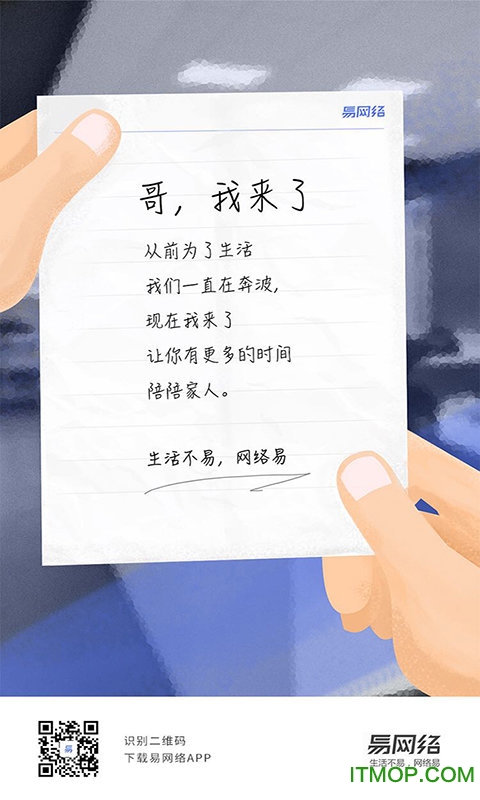 易网络
哥，我来了
从前为了生活
我们一直在奔波，
现在我来了
让你有更多的时间
陪陪家人。
生活不易，网络易
识别二维码
下载易网络APP
易
易网络
生活不易，网络易
ITMOP.com